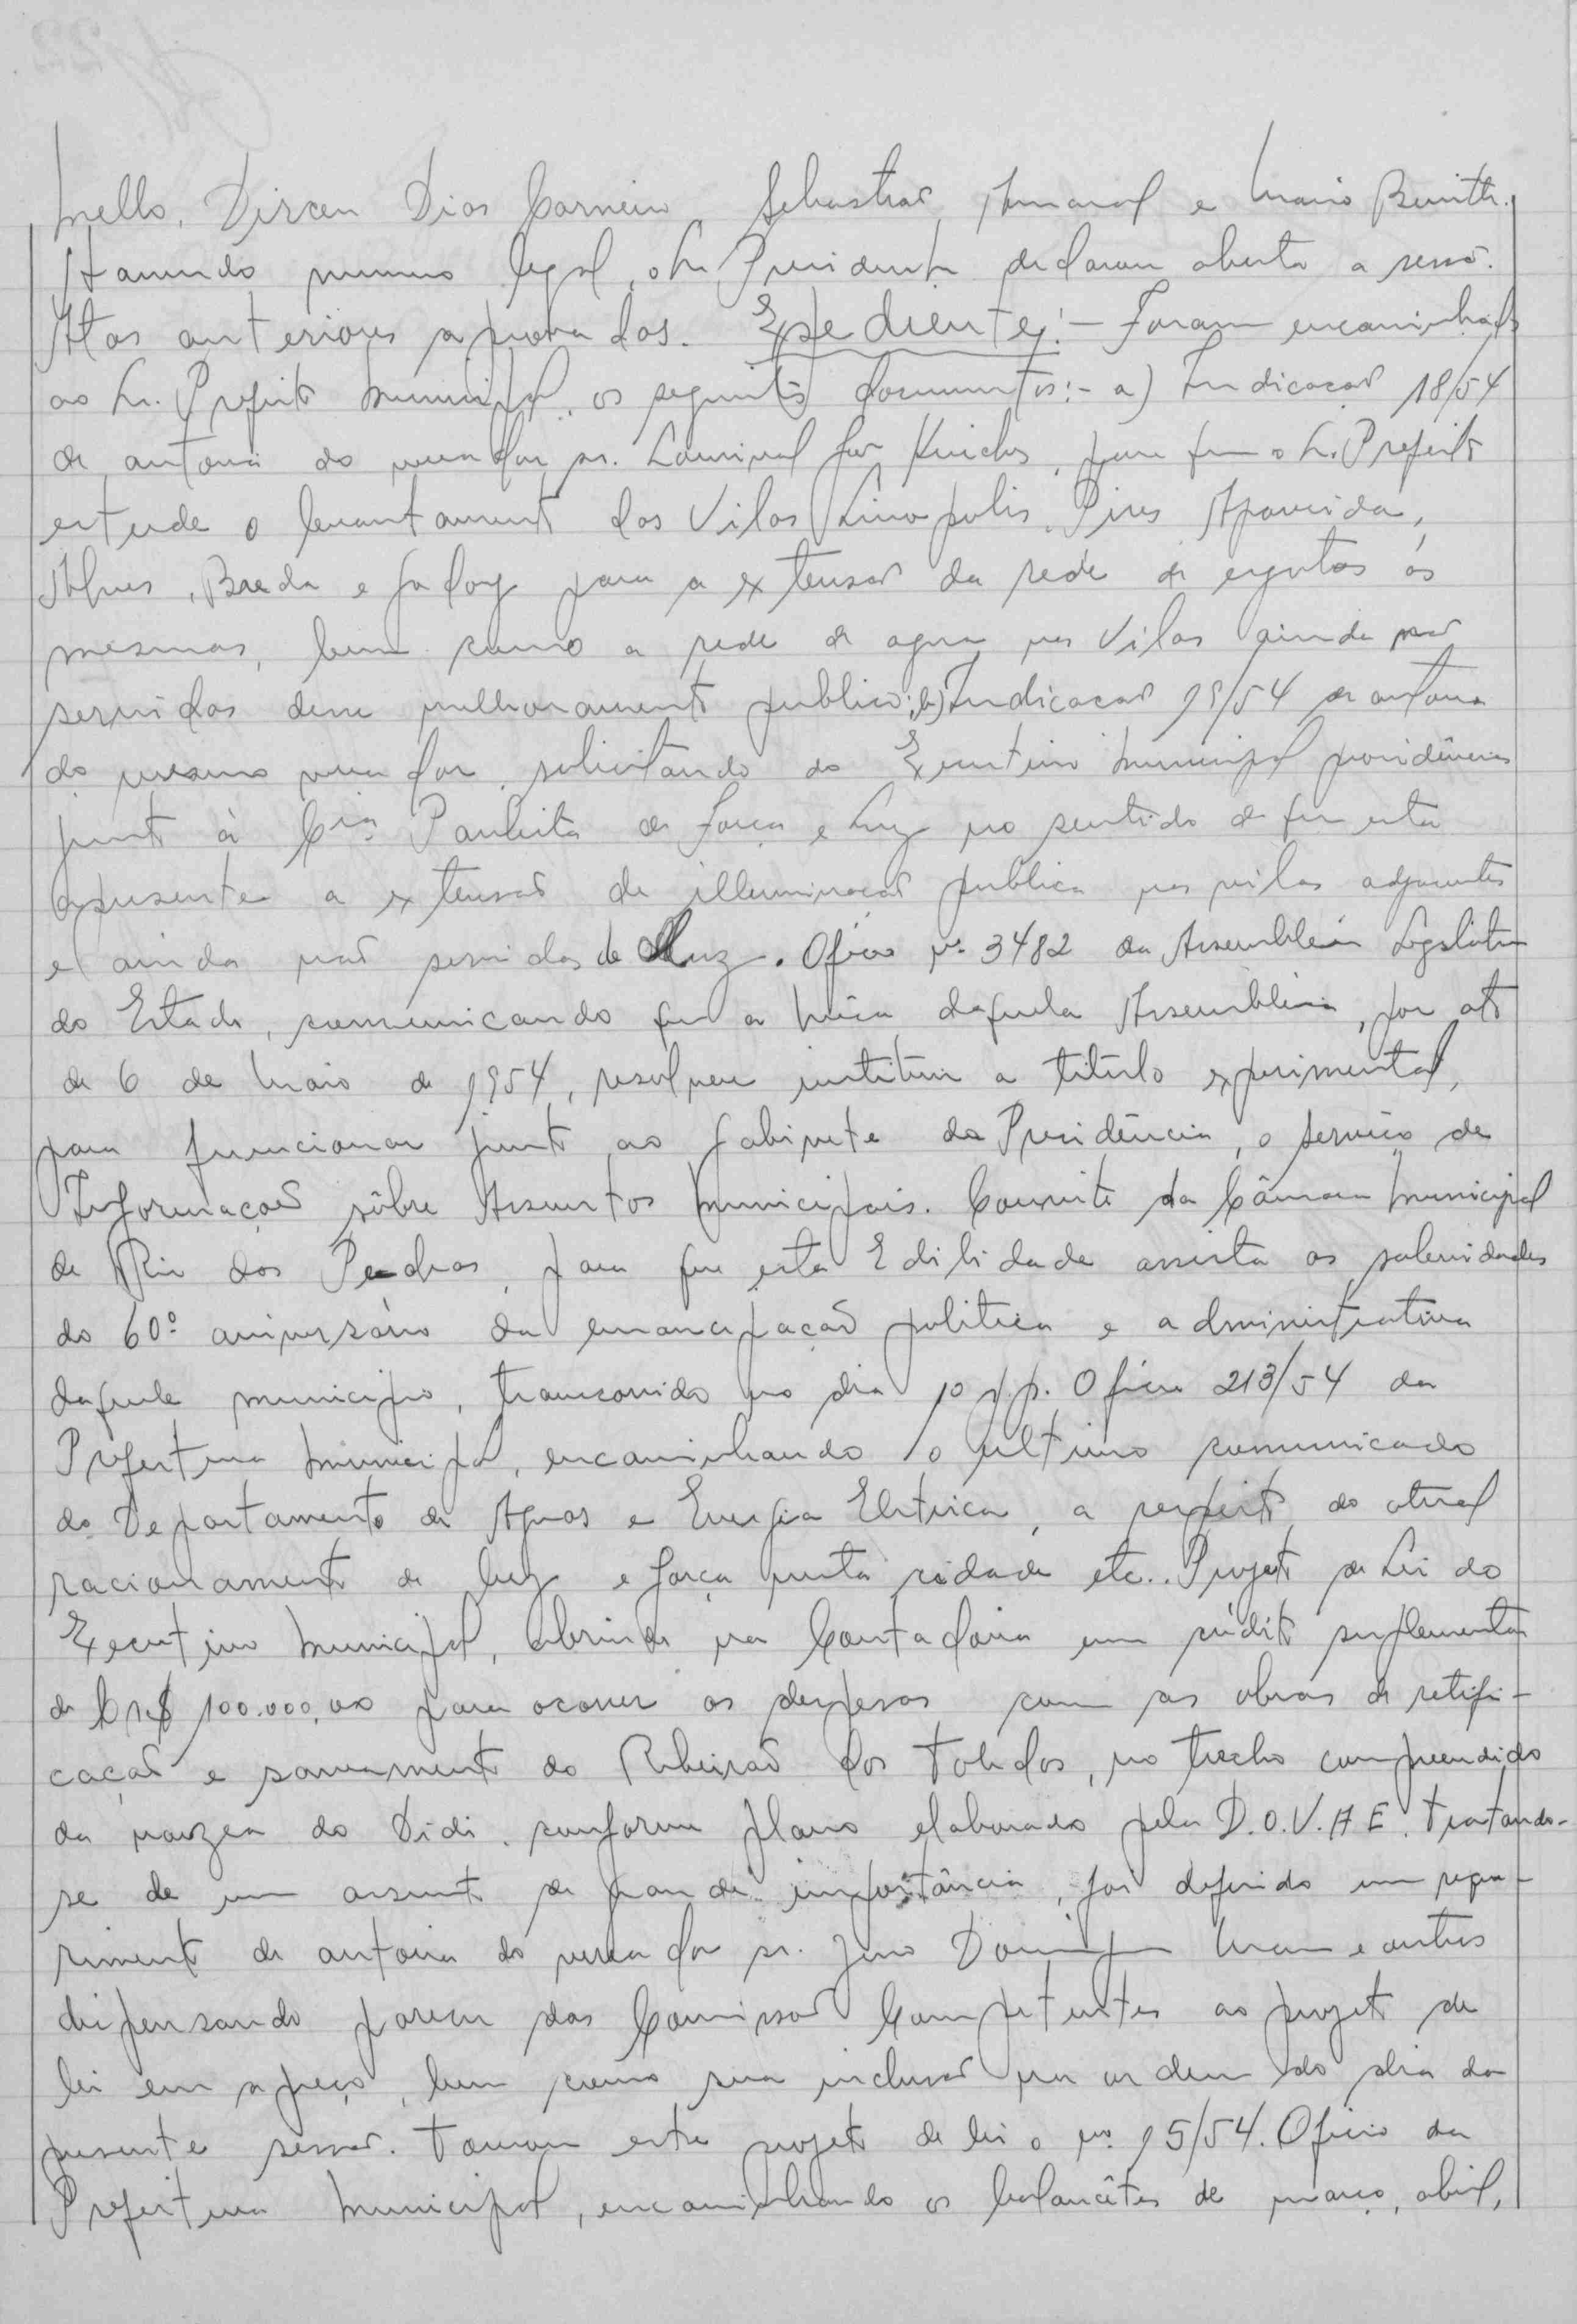 Mello, Dirceu Dias Carneiro, Sebastião Amaral e Mario
Havendo numero legal, o Sr. Presidente declarou aberta a sessão.
Atas anteriores aprovadas. Expediente:- Foram encaminhados
ao Sr. Prefeito Municipal, os seguintes documentos:- a) Indicação 18/54
de autoria do vereador sr. Lourival, para que o Sr. Prefeito
estude o levantamento das Vilas Linopolis, Pires, Aparecida,
Alves, Breda e Godoy para a extensão da rede de esgotos às
mesmas, bem como a rede de agua nas Vilas ainda não
servidas desse melhoramento publico; b) Indicação 19/54 de autoria
do mesmo vereador, solicitando do Executivo Municipal providências
junto à Cia. Paulista de Força e Luz no sentido de que esta
apresente a extensão de illuminação publica nas vilas adjacentes
e ainda não servidas de luz. Oficio nº 3482 da Assembléia Legislativa
do Estado, comunicando que a Mesa daquela Assembléia, por ato
de 6 de Maio de 1954, resolveu instituir a titulo experimental,
para funcionar junto ao Gabinete da Presidência, o serviço de
Informação sôbre Assuntos Municipais. Convite da Câmara Municipal
de Rio das Pedras, para que esta Edilidade assista as solenidades
do 60º aniversário da emancipação politica e administrativa
daquele municipio, transcorrido no dia 10 p.p. Oficio 213/54 da
Prefeitura Municipal, encaminhando o ultimo comunicado
do Departamento de Aguas e Energia Eletrica, a respeito do atual
racionamento de luz e força nesta cidade etc.. Projeto de Lei do
Executivo Municipal, abrindo na Contadoria um crédito suplementar
de Cr$ 100.000,00 para ocorrer as despesas com as obras de retifi-
cação e saneamento do Ribeirão dos Toledos, no trecho compreendido
da varzea do Didi, conforme plano elaborado pela D.O.V.A E. Tratando-
se de um assunto de grande importância, foi deferido um reque-
rimento de autoria do vereador sr. e outros
dispensando parecer das Comissão Competentes ao projeto de
lei em apreço, bem como sua inclusão na ordem do dia da
presente sessão. Tomou este projeto de lei o nº 15/54. Oficio da
Prefeitura Municipal, encaminhando os balancêtes de março, abril,